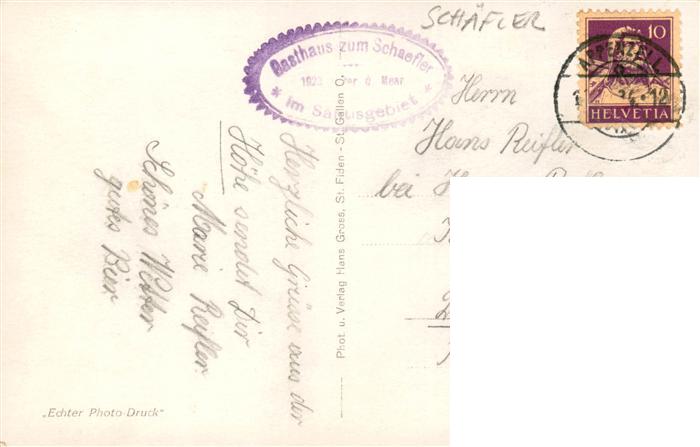 SCHÄFLER
Gasthaus zum Schaefler
1923 ü. Meer
* im Säntisgebiet *
10
HELVETIA
APPENZELL
Herrn
Hans Reifler
bei
Herzliche Grüsse aus der
Höhe sendet Dir
Marie Reifler.
Schönes Wetter
gutes Bier
Phot. u. Verlag Hans Gross, St. Fiden - St. Gallen O.
„Echter Photo-Druck"